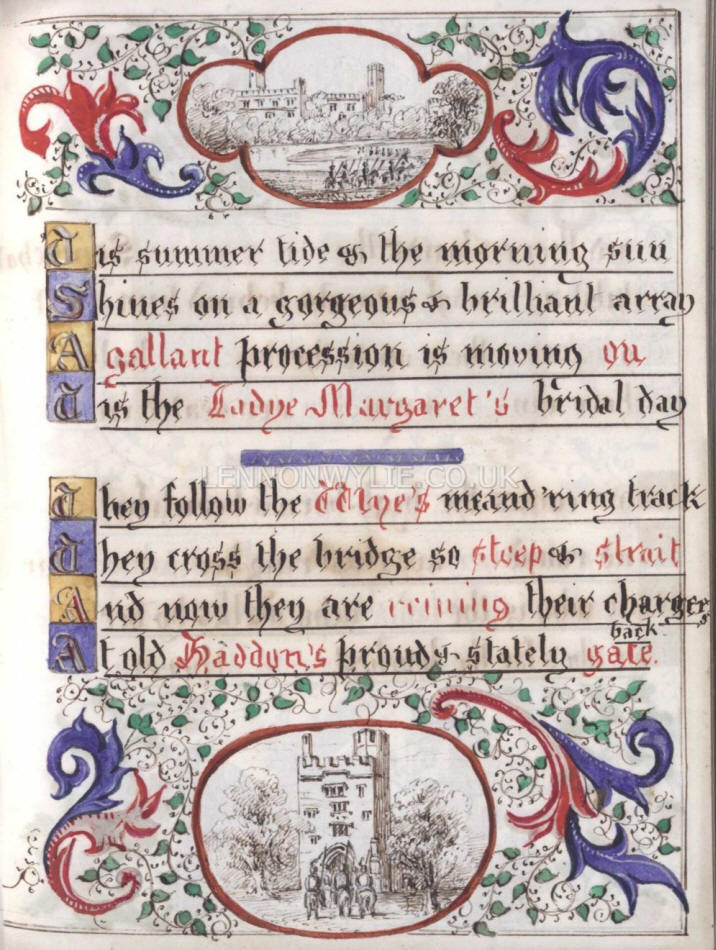 Tis summer tide & the morning sun
Shines on a gorgeous & brilliant array
A gallant procession is moving on
Tis the Ladye Margaret's bridal day
LENNONWYLIE.CO.UK
They follow the Wye's meand'ring track
They cross the bridge so steep & strait
And now they are reining their chargers
back
At old Haddon's proud & stately gate.